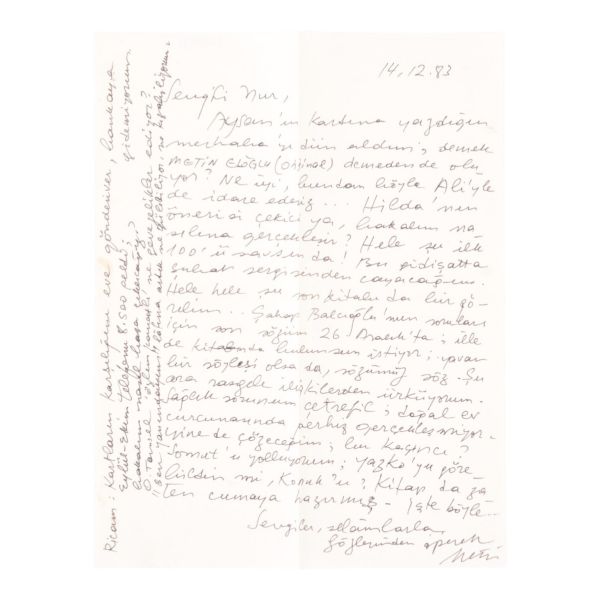 14.12.83
Sevgili Nur,
Aysan'ın kartına yazdığın
merhaba'yı dün aldım; demek
METİN ELOĞLU (Orijinal) demeden de olu
yor? Ne iyi, bundan böyle Ali'yle
de idare ederiz... Hilda'nın
önerisi çekici ya, bakalım na
sılına gerçekleşir? Hele şu ilk
100'ü savsın da! Bu gidişatta
Şubat sergisinden cayacağım.
Hele hele şu son kitabı da bir gö
relim... Şahap Balcıoğlu'nun soruları
için son sözüm 26 Aralık'ta; ille
de kitabında bulunsun istiyor; yavan
bir söyleşi olsa da, sözümüz söz. Şu
ara rasgele ilişkilerden ürküyorum.
Sağlık sorunum çetrefil; doğal ev
curcunasında perhiz gerçekleşmiyor.
Yine de çözeceğim; bu kaçıncı?
Somut'u yolluyorum; Yazko'yu göre
bildin mi, Konuk'u? Kitap da za
ten cumaya hazırmış - İşte böyle...
Sevgiler, selâmlarla
Gözlerinden öperek
Metin
Ricam: Kartların karşılığını eve gönderiver, bankaya
gidemiyorum.
Eylül-Ekim telefonu 8.500 geldi;
bakalım nasıl başa çıkacağız?
O Tansel "özlem" ne gevezelikler ediyor?
"Ben yanındayım"